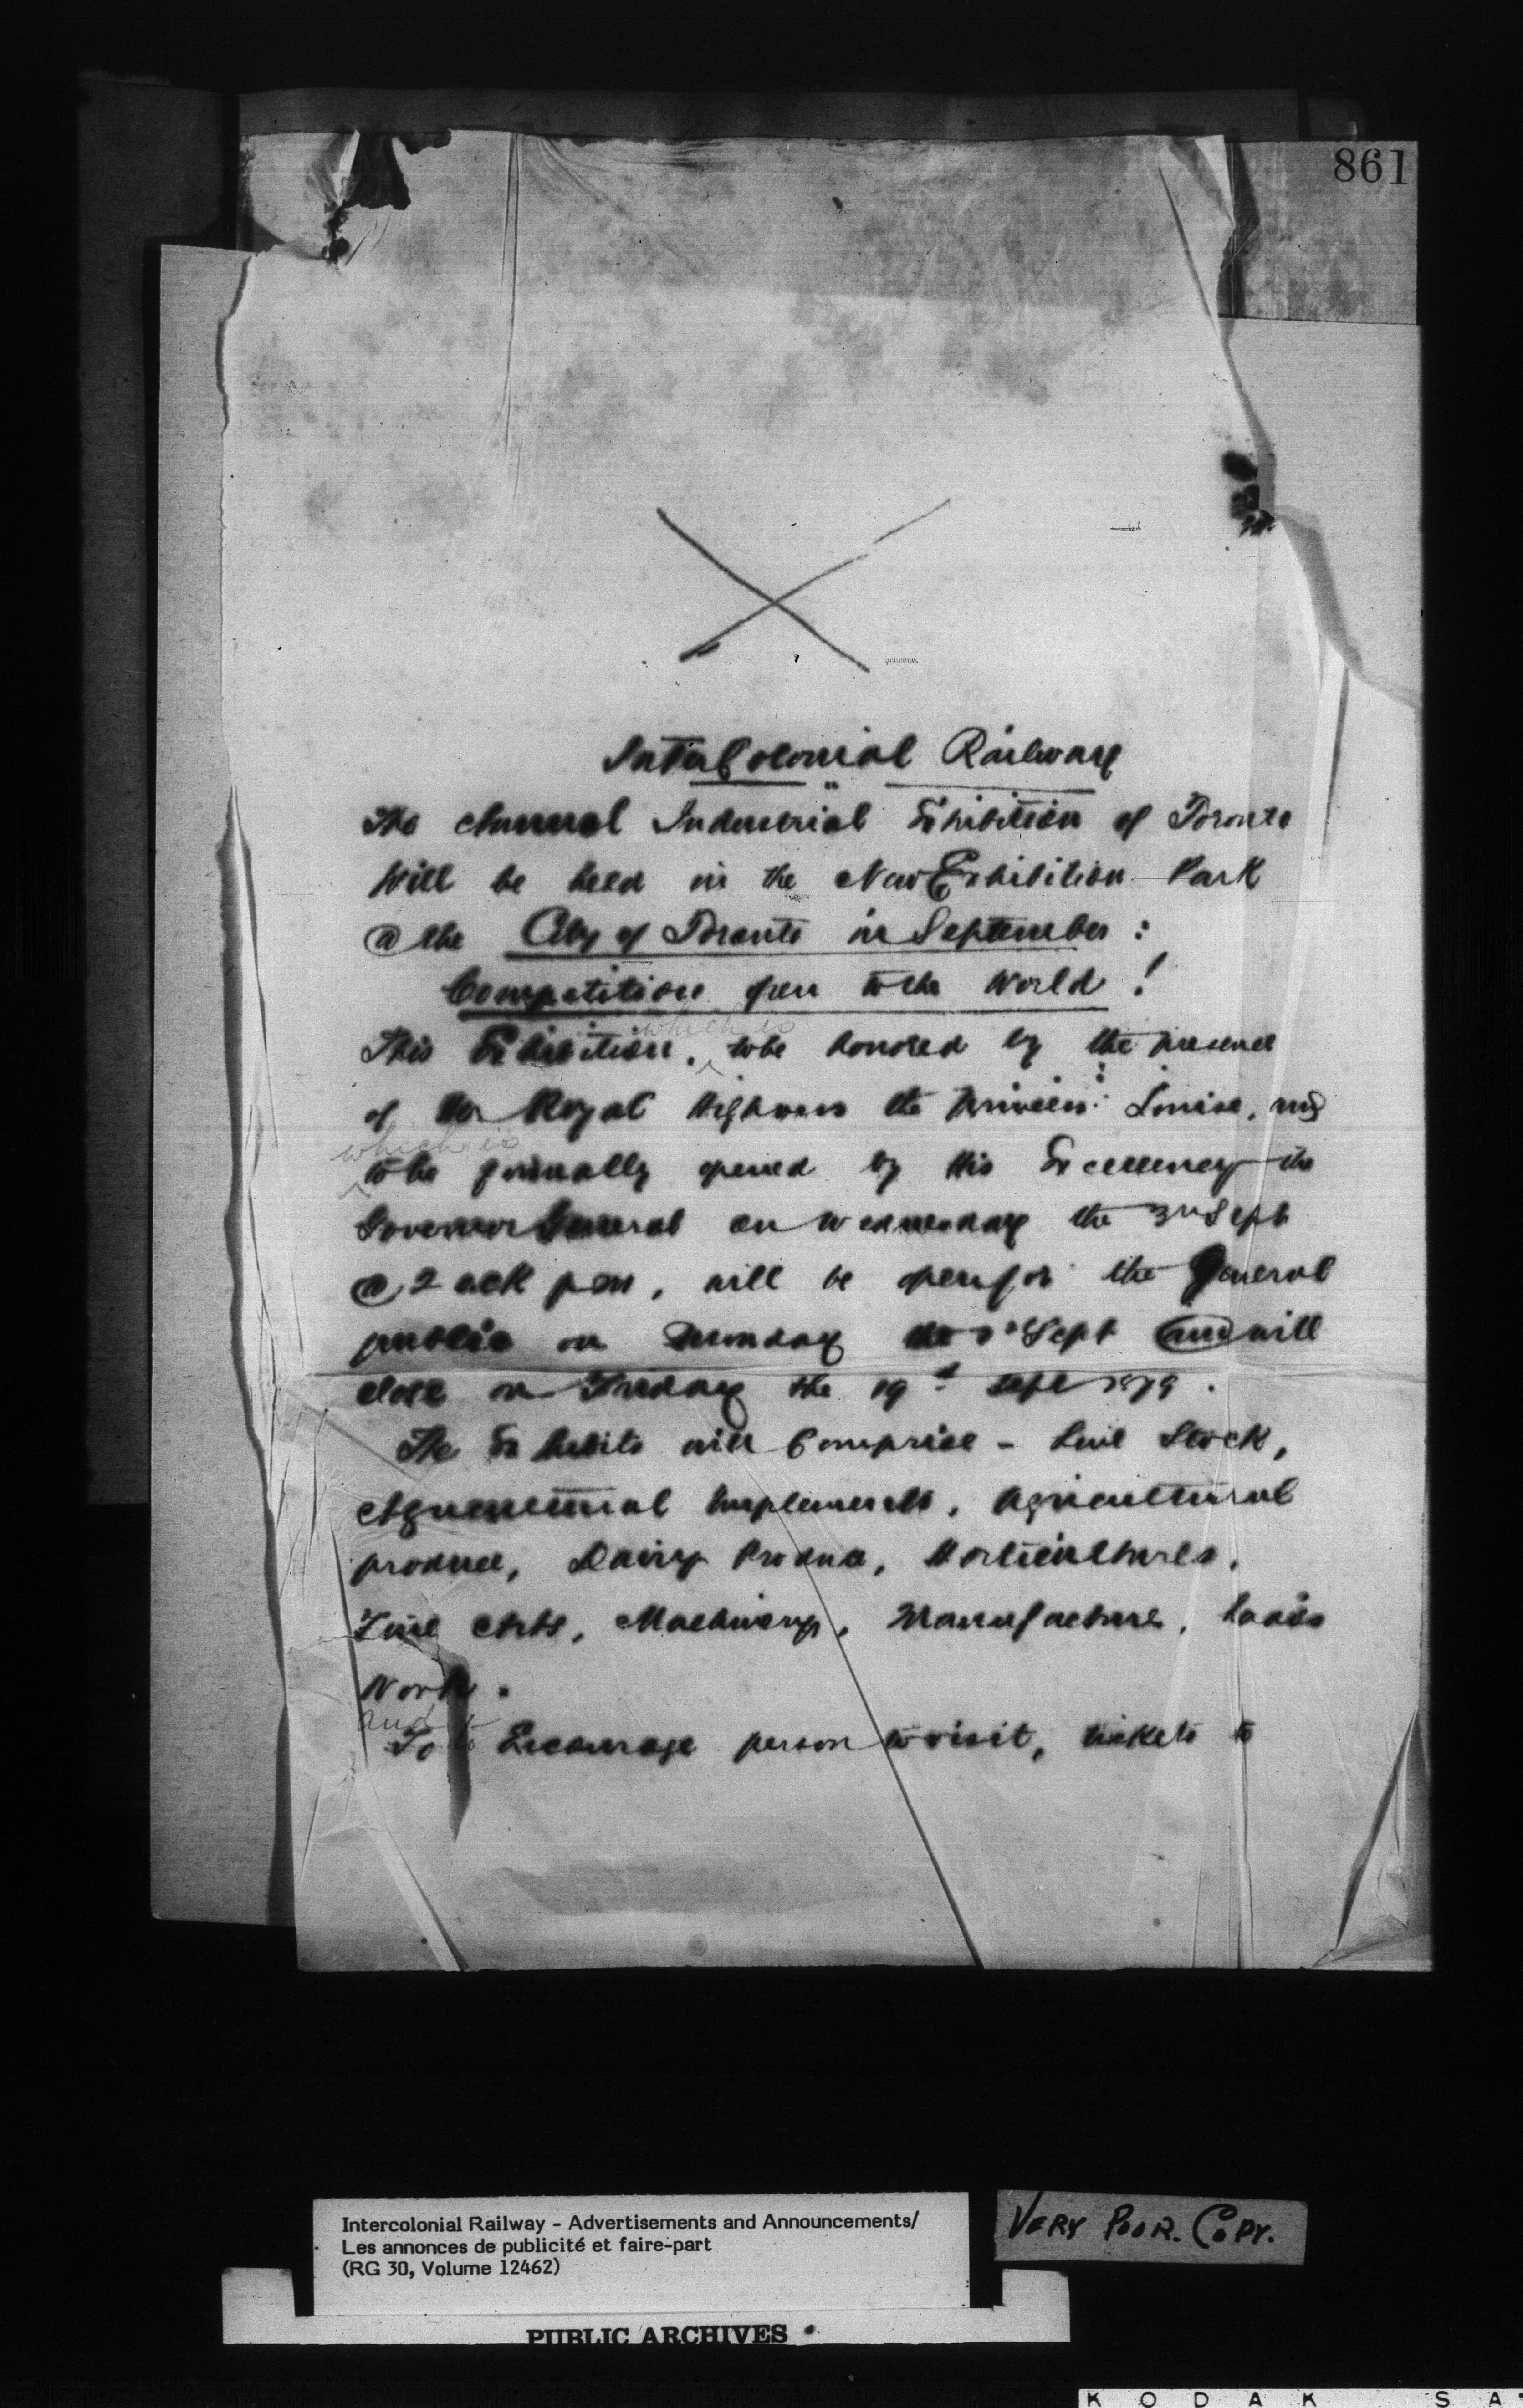 861
InterColonial Railway
The Annual Industrial Exhibition of Toronto
Will be held in the New Exhibition Park
@ the City of Toronto in September :
Competition open to the World !
which is
This Exhibition, to be honored by the presence
of Her Royal Highness the Princess Louise, and
which is
to be formally opened by His Excellency the
Governor General on Wednesday the 3rd Sept
@ 2 oclk pm, will be open for the General
public on Sept and will
close on Friday the 19th Sept 1879.
The Exhibits will Comprise - Live Stock,
Agricultural Implements, Agricultural
produce, Dairy Produce, Horticultures,
Fine Arts, Machinery, Manufactures, Ladies
Work.
and
To Encourage person to visit, tickets to
Intercolonial Railway - Advertisements and Announcements/
Les annonces de publicité et faire-part
(RG 30, Volume 12462)
VERY POOR. COPY.
PUBLIC ARCHIVES
KODAK SA